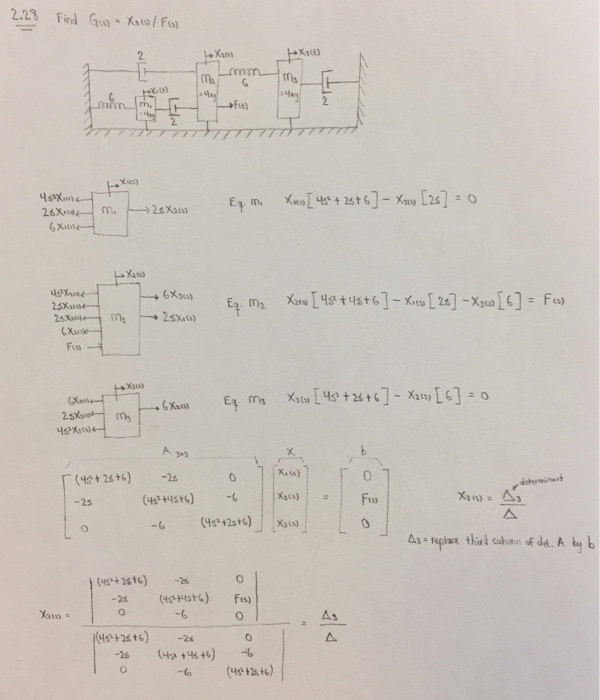 2.28 Find G(s) = X₃(s) / F(s)
2 X₂(t) X₃(t)
m₂ 6 m₃
=4kg =4kg 2
6 X₁(t) F(t)
m₁ =4kg 2
X₁(s)
4s²X₁(s)
2sX₁(s) m₁ 2sX₂(s)
6X₁(s)
Eq. m₁ X₁(s)[4s² + 2s + 6] - X₂(s)[2s] = 0
X₂(s)
4s²X₂(s) 6X₃(s)
2sX₂(s)
2sX₂(s) m₂ 2sX₁(s)
6X₂(s)
F(s)
Eq. m₂ X₂(s)[4s² + 4s + 6] - X₁(s)[2s] - X₃(s)[6] = F(s)
X₃(s)
6X₃(s)
2sX₃(s) m₃ 6X₂(s)
4s²X₃(s)
Eq. m₃ X₃(s)[4s² + 2s + 6] - X₂(s)[6] = 0
A 3×3 X b
(4s² + 2s + 6) -2s 0 X₁(s) 0
-2s (4s² + 4s + 6) -6 X₂(s) = F(s)
0 -6 (4s² + 2s + 6) X₃(s) 0
determinant
X₃(s) = Δ₃ / Δ
Δ₃ = replace third column of det. A by b
(4s² + 2s + 6) -2s 0
-2s (4s² + 4s + 6) F(s)
0 -6 0
X₃(s) = = Δ₃ / Δ
(4s² + 2s + 6) -2s 0
-2s (4s² + 4s + 6) -6
0 -6 (4s² + 2s + 6)